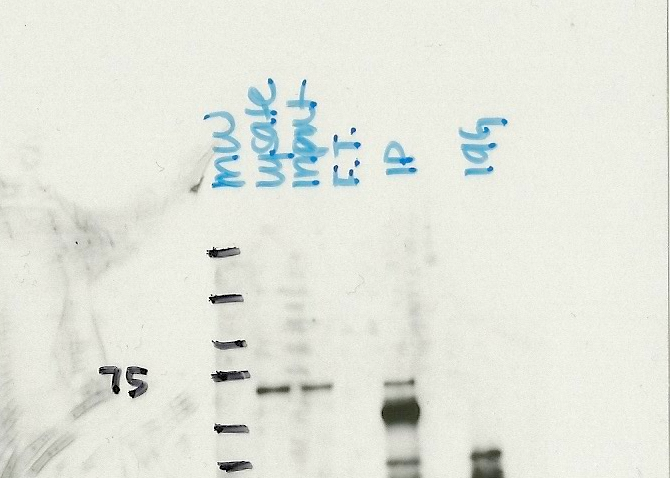 MW
lysate
input
F.T.
IP
IgG
75